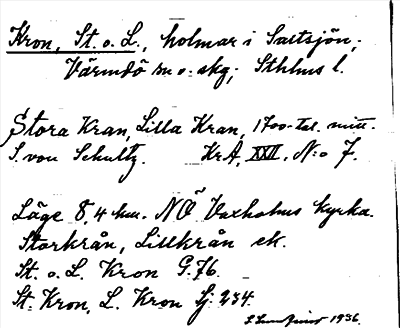 Kron, St. o. L., holmar i Saltsjön,
Värmdö sn o. skg; Sthlms l.
Stora Kran, Lilla Kran, 1700-tal. mitt.
S. von Schultz. KrA, XXII, N:o 7.
Läge 8,4 km. NÖ Vaxholms kyrka.
Storkrån, Lillkrån ek.
St. o. L. Kron G. 76.
St. Kron, L. Kron Sj. 234.
1936.